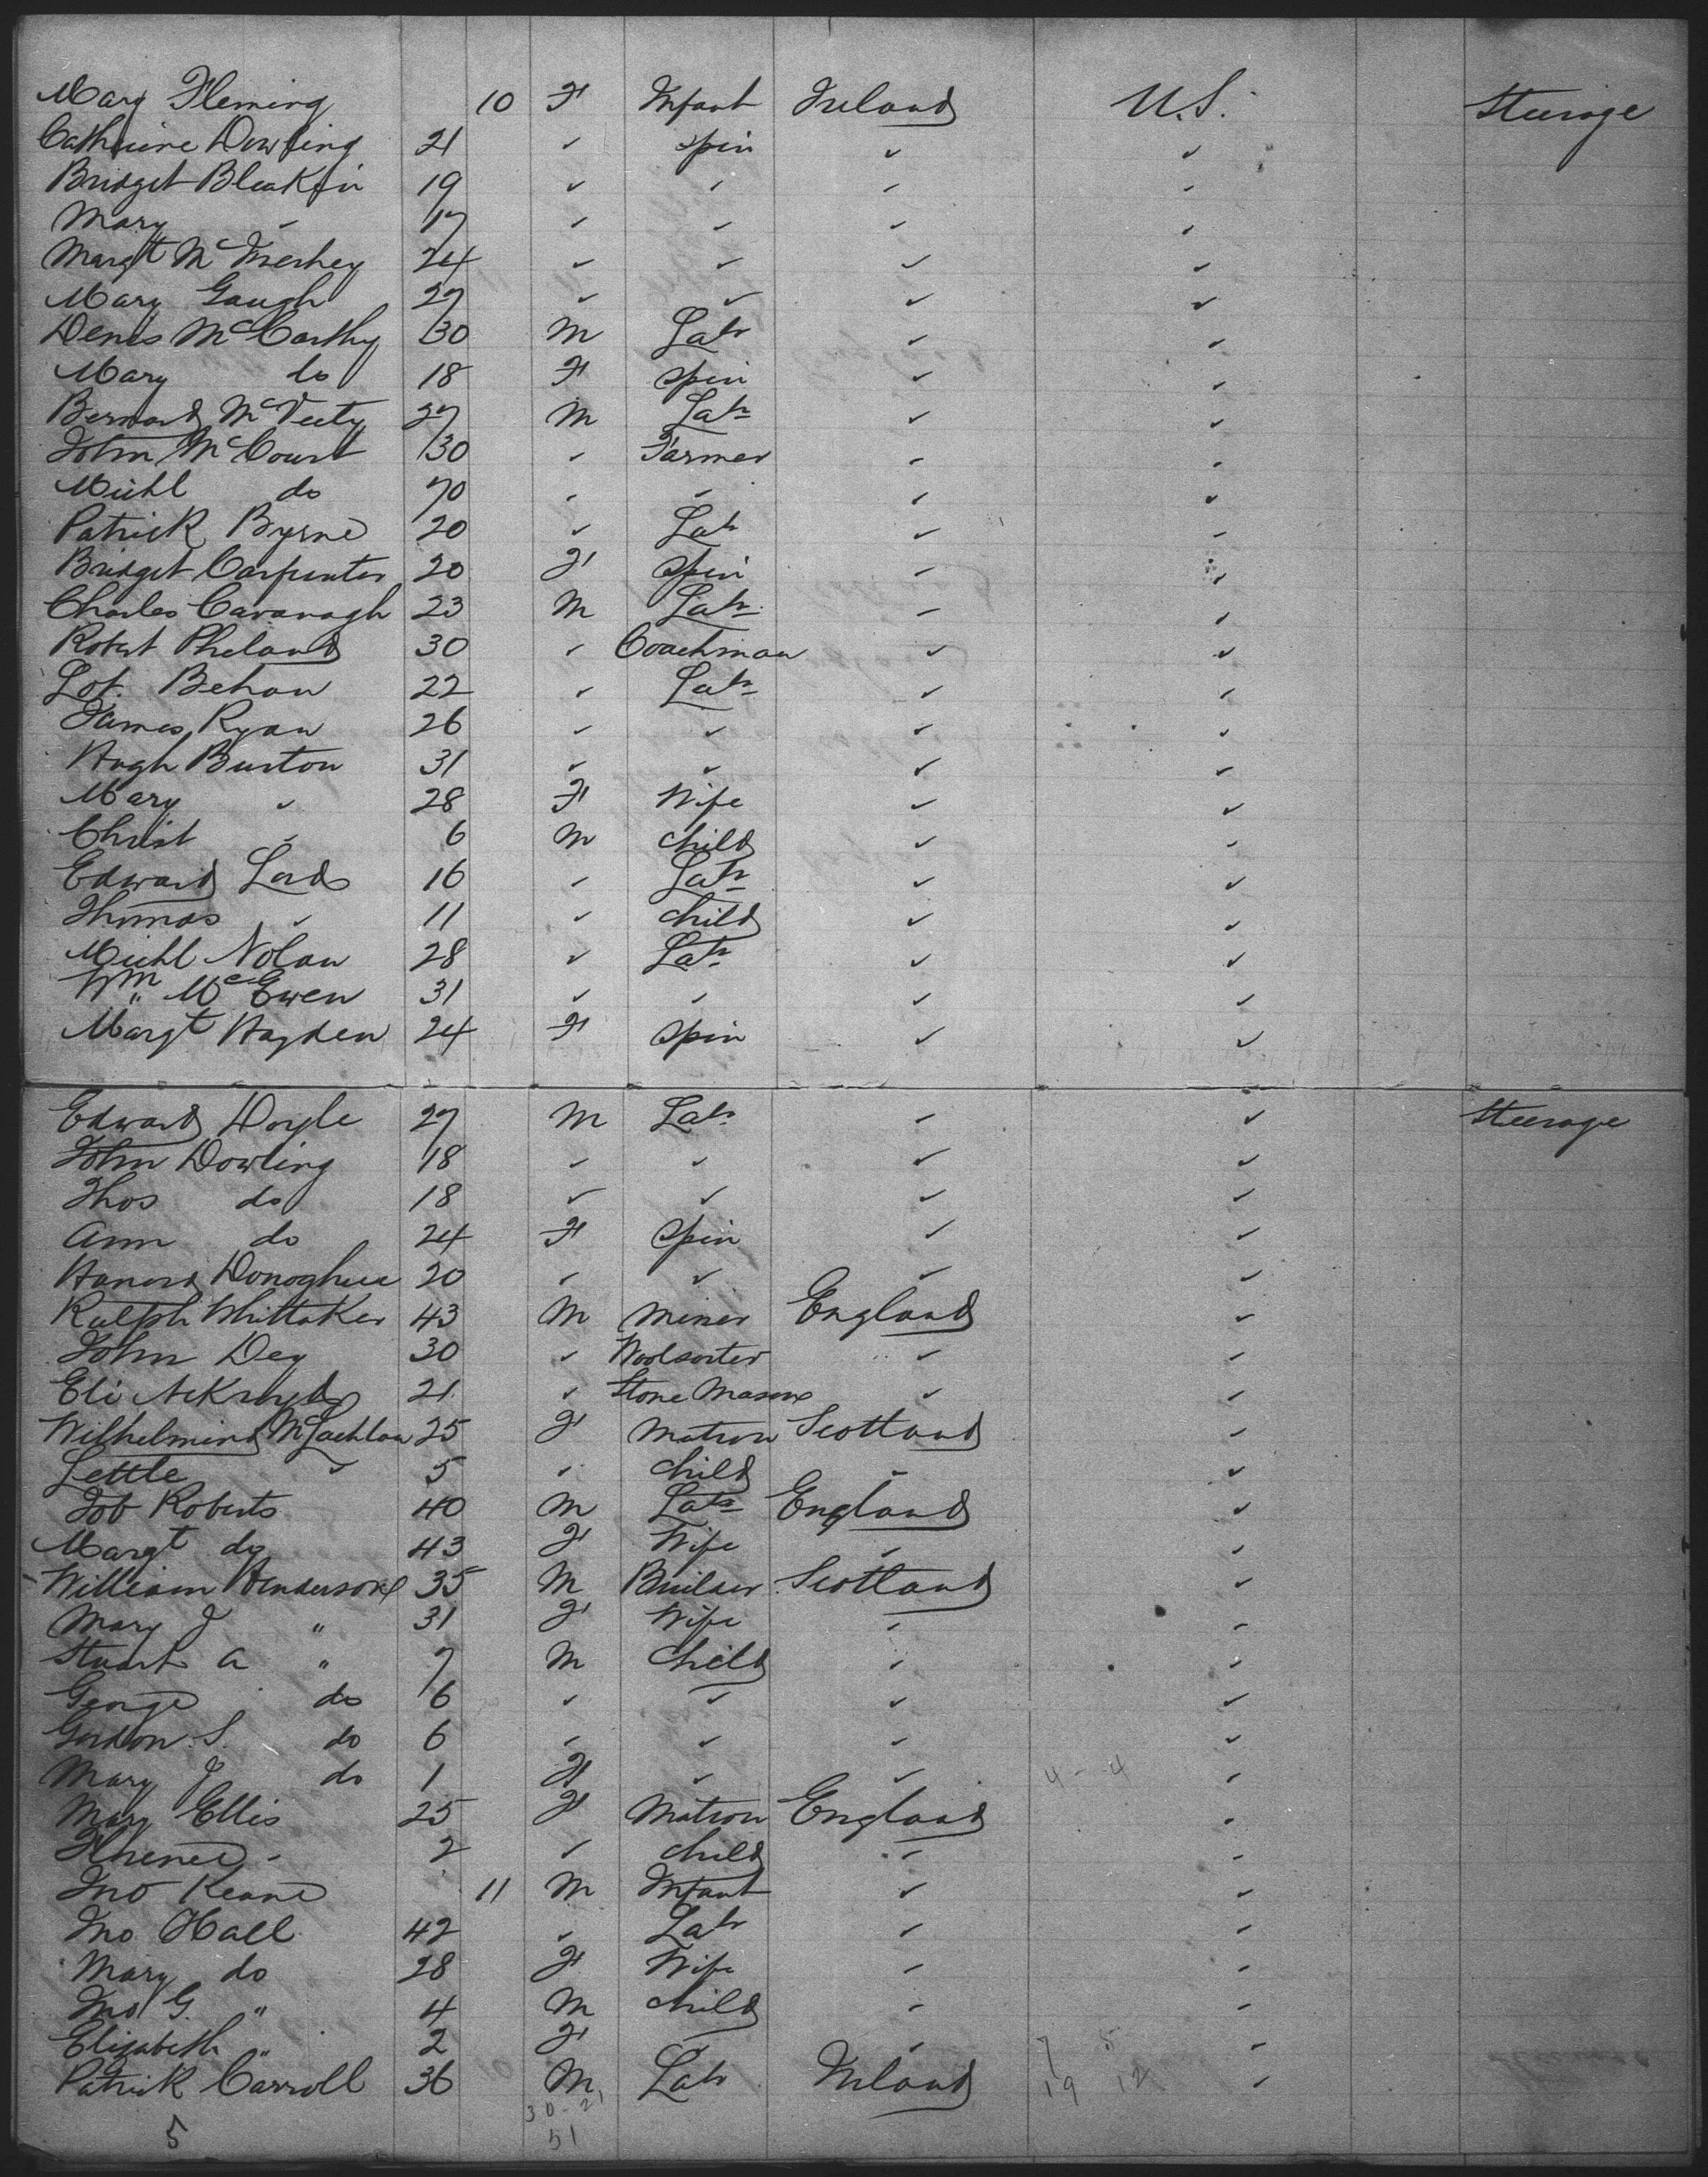 Mary Fleming 10 F Infant Ireland U.S. Steerage
Catherine Dowling 21 " spin " "
Bridget 19 " " " "
Mary " 17 " " " "
Margt Mc 24 " " " "
Mary Gaugh 27 " " " "
Denis McCarthy 30 M Labr " "
Mary do 18 F spin " "
Bernard McVeety 27 M Labr " "
John McCourt 30 " Farmer " "
Michl do 70 " " " "
Patrick Byrne 20 " Labr " "
Bridget Carpenter 20 F spin " "
Charles Cavanagh 23 M Labr " "
Robert Pheland 30 " Coachman " "
Lot. Behan 22 " Labr " "
James Ryan 26 " " " "
Hugh Burton 31 " " " "
Mary " 28 F Wife " "
Christ " 6 M child " "
Edward 16 " Labr " "
Thomas " 11 " child " "
Michl Nolan 28 " Labr " "
Wm McEwen 31 " " " "
Margt Hayden 24 F spin " "
Edward Doyle 27 M Labr " " Steerage
John Dowling 18 " " " "
Thos do 18 " " " "
Ann do 24 F spin " "
Hanora Donoghue 20 " " " "
Ralph Whittaker 43 M Miner England "
John Dey 30 " Woolsorter " "
Eli Ackroyd 21 " Stone Mason " "
Wilhelmina McLachlan 25 F Matron Scotland "
Lettle " 5 " child " "
Job Roberts 40 M Labr England "
Margt do 43 F Wife " "
William Henderson 35 M Builder Scotland "
Mary J " 31 F Wife " "
Stuart A " 7 M child " "
George do 6 " " " "
Gordon S. do 6 " " " "
Mary J do 1 F " " 4 - 4 "
Mary Ellis 25 F Matron England "
" 2 " child " "
Jno Keane 11 M Infant " "
Jno Hall 42 " Labr " "
Mary do 28 F Wife " "
Jno G. " 4 M child " "
Elizabeth " 2 F " 7 5 "
Patrick Carroll 36 M Labr Ireland 19 12 "
30 - 21
5 51